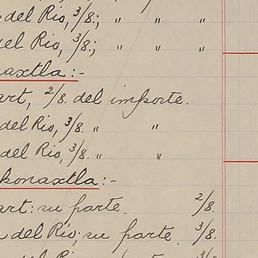 del Rio, 3/8.; " " "
del Rio, 3/8.; " " "
naxtla:-
art, 2/8. del importe.
del Rio, 3/8. " "
del Rio, 3/8. " "
konaxtla:-
art: su parte. 2/8.
del Rio; su parte. 3/8.
del Rio 3/8